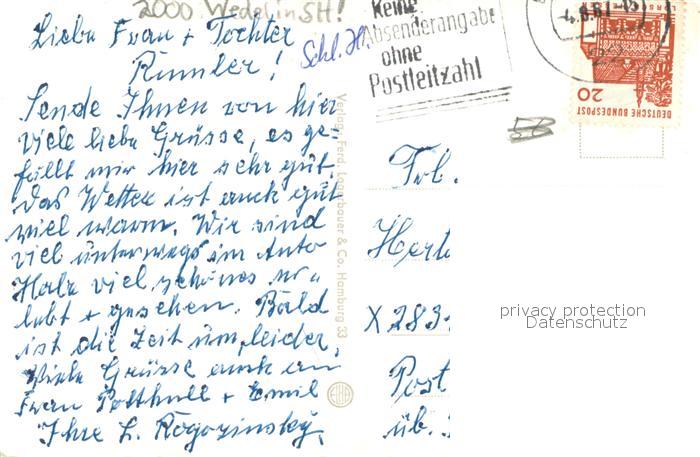 2000 Wedel in SH!
Liebe Frau + Tochter
Rumler!
Schl. H.
Sende Ihnen von hier
viele liebe Grüsse, es ge-
fällt mir hier sehr gut.
Das Wetter ist auch gut
viel warm. Wir sind
viel unterwegs im Auto
Habe viel schönes
+ gesehen. Bald
ist die Zeit um, leider.
Viele Grüsse auch an
Frau Potthull + Emil
Ihre L. Rogozinsky.
Verlag Ferd. Lagerbauer & Co. Hamburg 33
Keine
Absenderangabe
ohne
Postleitzahl
-4.8.67-15
20
DEUTSCHE BUNDESPOST
56
Frl.
Hert
X 283
Post
üb.
privacy protection
Datenschutz